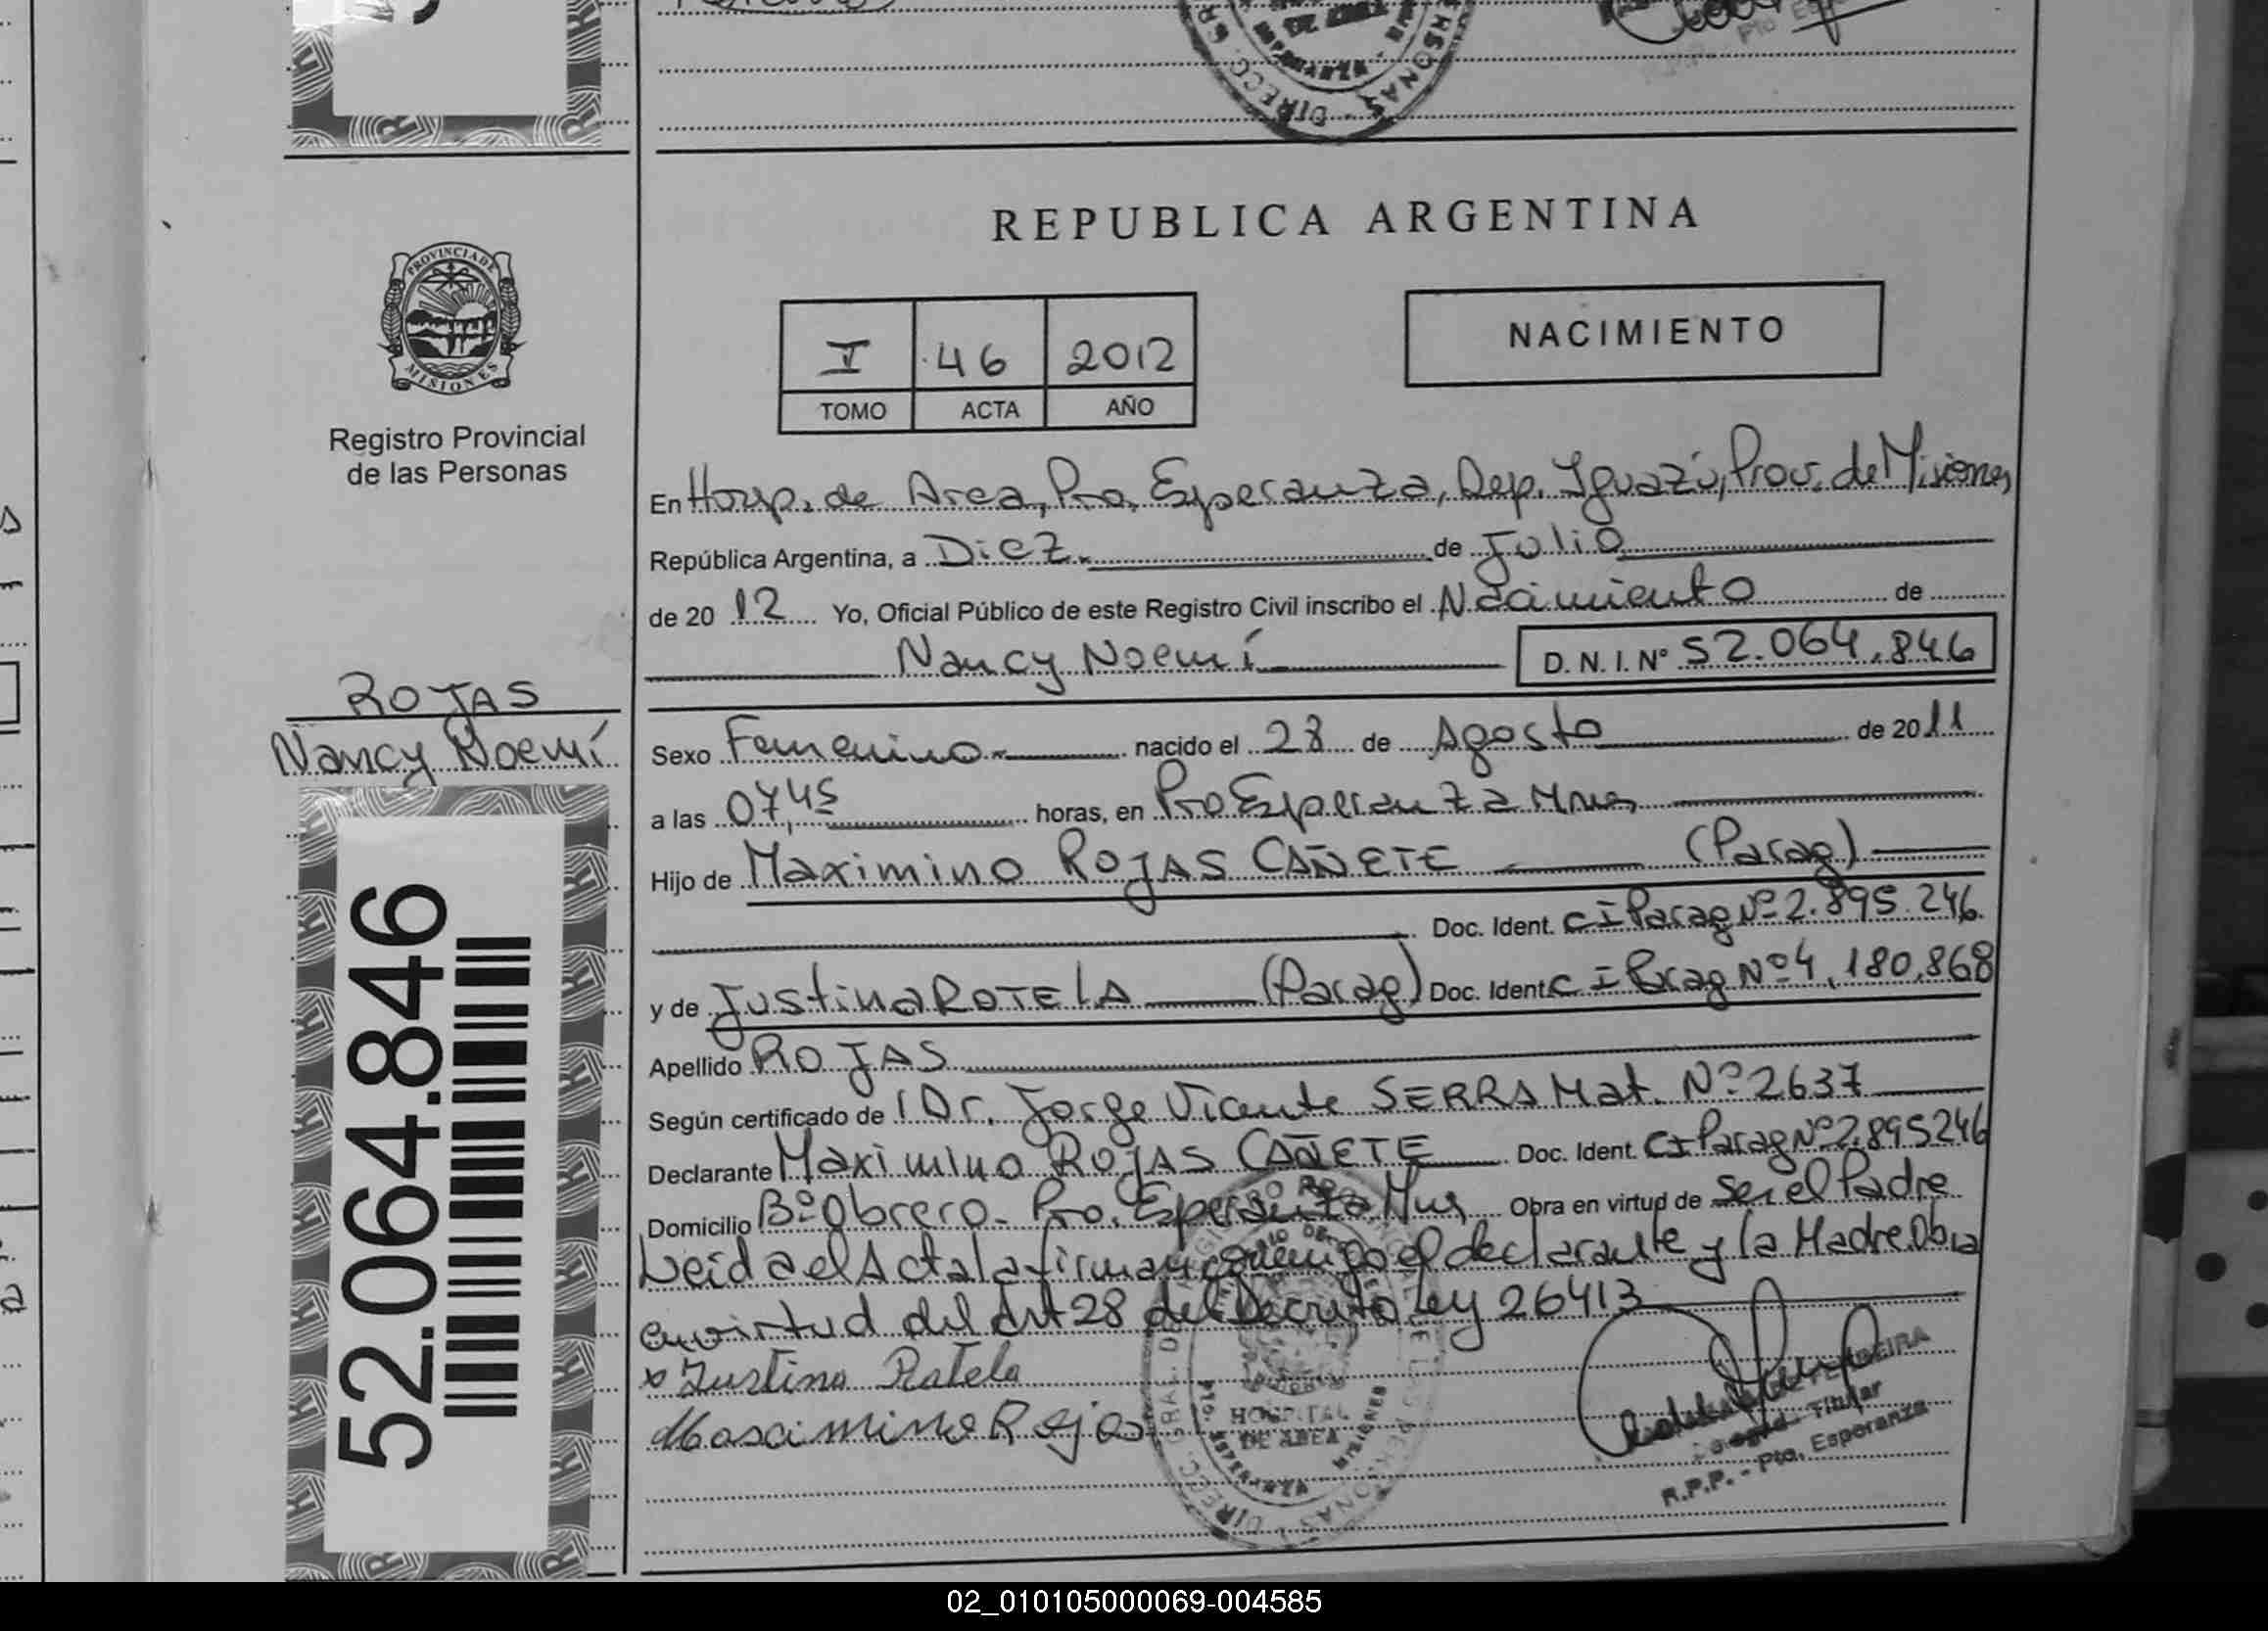 REPUBLICA ARGENTINA
PROVINCIA DE
MISIONES
Registro Provincial
de las Personas
I 46 2012
TOMO ACTA AÑO
NACIMIENTO
En Hosp. de Area, Pto. Esperanza, Dep. Iguazú, Prov. de Misiones
República Argentina, a Diez de Julio
de 2012 Yo, Oficial Público de este Registro Civil inscribo el Nacimiento de
Nancy Noemí D. N. I. Nº 52.064.846
ROJAS
Nancy Noemí
52.064.846
Sexo Femenino nacido el 28 de Agosto de 2011
a las 07,45 horas, en Pto Esperanza Mnes
Hijo de Maximino ROJAS CAÑETE (Parag)
Doc. Ident. CI Parag Nº 2.895.246
y de Justina ROTELA (Parag) Doc. Ident. CI Parag Nº 4.180.868
Apellido ROJAS
Según certificado de Dr. Jorge Vicente SERRA Mat. Nº 2637
Declarante Maximino ROJAS CAÑETE Doc. Ident. CI Parag Nº 2.895246
Domicilio Bº Obrero. Pto. Esperanza Mns Obra en virtud de Ser el Padre
Leida el Acta la firman conmigo el declarante y la Madre. Obra
en virtud del Art 28 del Decreto Ley 26413
x Justina Rotela
Mascimino Rojas
HOSPITAL
DE AREA
Titular
R.P.P. - Pto. Esperanza
02_010105000069-004585